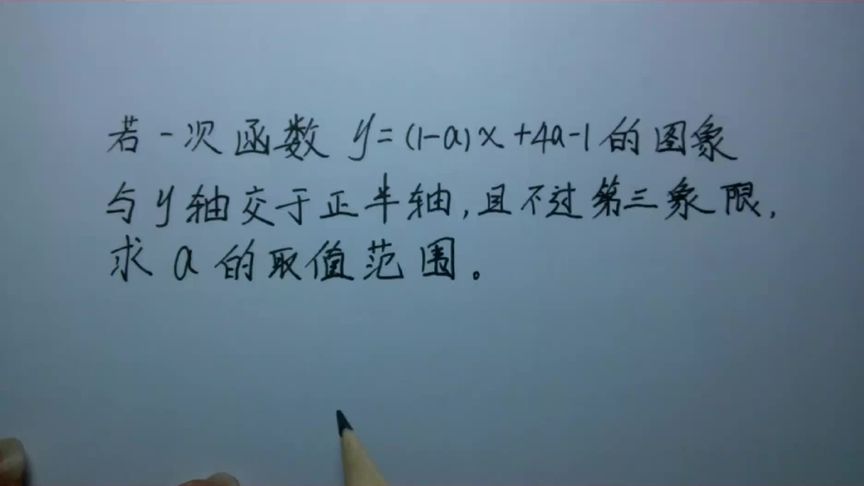 若一次函数 y=(1-a)x+4a-1的图象
与y轴交于正半轴,且不过第三象限,
求 a 的取值范围。